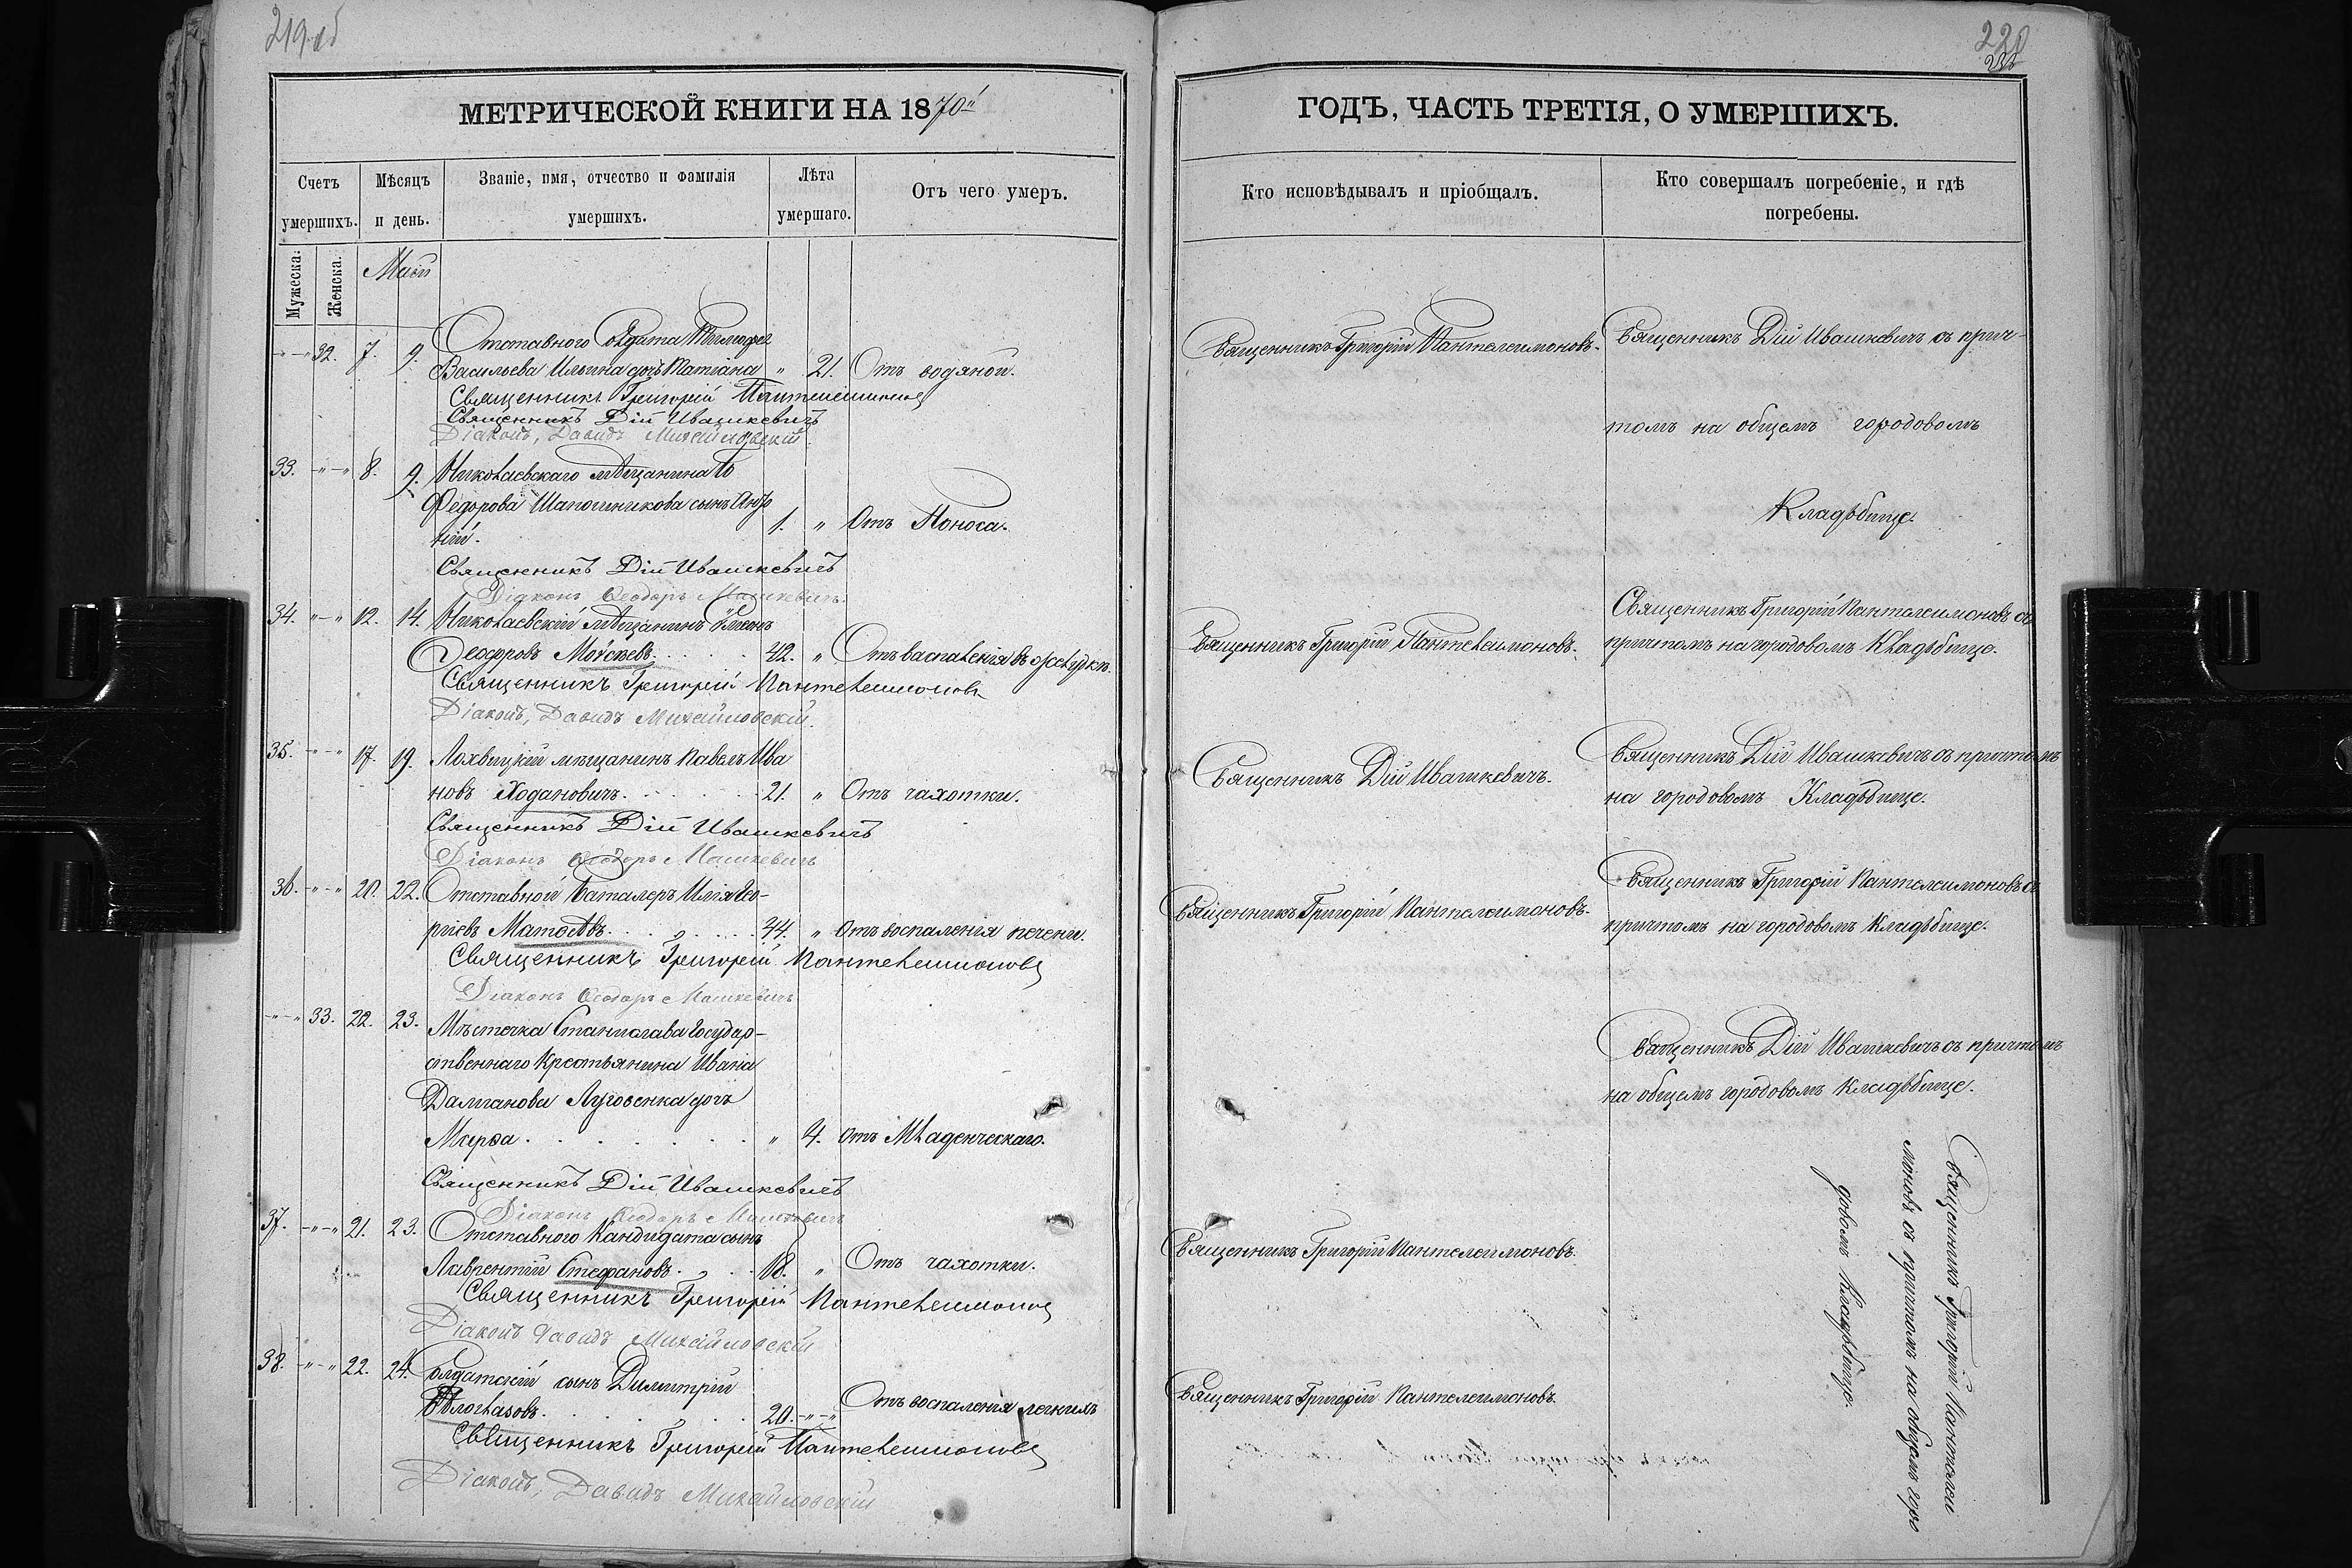 219 об
МЕТРИЧЕСКОЙ КНИГИ НА 1870й
Счетъ умершихъ.
Мѣсяцъ и день.
Званіе, имя, отчество и фамилія умершихъ.
Лѣта умершаго.
Отъ чего умеръ.
Мужеска.
Женска.
Май
Отставного Солдата Тимофея
-"-" 32. 7. 9. Васильева Ильина дочь Татіана " 21. Отъ водяной.
Священникъ Григорій Пантелеимоновъ
Священникъ Дій Ивашкевичъ
Діаконъ, Давидъ Михайловскій.
33. -"-" 8. 9. Николаевскаго мѣщанина
Федорова Шапошникова сынъ
ній. 1. " Отъ Поноса.
Священникъ Дій Ивашкевичъ
Діаконъ Ѳеодоръ Машкевичъ.
34. "-" 12. 14. Николаевскій мѣщанинъ
Ѳеодоровъ Моѵсѣевъ. 42. " Отъ васпаленія въ желудкѣ.
Священникъ Григорій Пантелеимоновъ
Діаконъ, Давидъ Михайловскій.
35. -"-" 17. 19. Лохвицкій мѣщанинъ Павелъ Ива
новъ Ходановичъ. 21. " Отъ чахотки.
Священникъ Дій Ивашкевичъ
Діаконъ Ѳеодоръ Машкевичъ
36. -"-" 20. 22. Отставной Баталеръ Илія Гео-
ргіевъ 44. " Отъ воспаленія печени.
Священникъ Григорій Пантелеимоновъ
Діаконъ Ѳеодоръ Машкевичъ
-"-" 33. 22. 23. Мѣстечка Станислава Государ-
ственнаго Крестьянина Ивана
Луговенка дочь
Марѳа. " 4. Отъ Младенческаго.
Священникъ Дій Ивашкевичъ
Діаконъ Ѳеодоръ Машкевичъ
37. -"-" 21. 23. Отставного Кандидата сынъ
Лаврентій Стефановъ. 18. " Отъ чахотки.
Священникъ Григорій Пантелеимоновъ
Діаконъ Давидъ Михайловскій
38. -"-" 22. 24. Солдатскій сынъ Димитрій
Бѣлоглазовъ. 20. -"-" Отъ воспаленія легкихъ
Священникъ Григорій Пантелеимоновъ
Діаконъ, Давидъ Михайловскій
220
ГОДЪ, ЧАСТЬ ТРЕТІЯ, О УМЕРШИХЪ.
Кто исповѣдывалъ и пріобщалъ.
Кто совершалъ погребеніе, и гдѣ погребены.
Священникъ Григорій Пантелеимоновъ.
Священникъ Дій Ивашкевичъ съ прич-
томъ на общемъ городовомъ
Кладѣбище.
Священникъ Григорій Пантелеимоновъ.
Священникъ Григорій Пантелеимоновъ съ
причтомъ на городовомъ Кладѣбище.
Священникъ Дій Ивашкевичъ.
Священникъ Дій Ивашкевичъ съ причтомъ
на городовомъ Кладѣбище.
Священникъ Григорій Пантелеимоновъ.
Священникъ Григорій Пантелеимоновъ съ
причтомъ на городовомъ Кладѣбище.
Священникъ Дій Ивашкевичъ съ причтомъ
на общемъ городовомъ Кладѣбище.
Священникъ Григорій Пантелеимоновъ.
Священникъ Григорій Пантелеимоновъ.
Священникъ Григорій Пантелеи
моновъ съ причтомъ на общемъ горо
довомъ Кладѣбище.